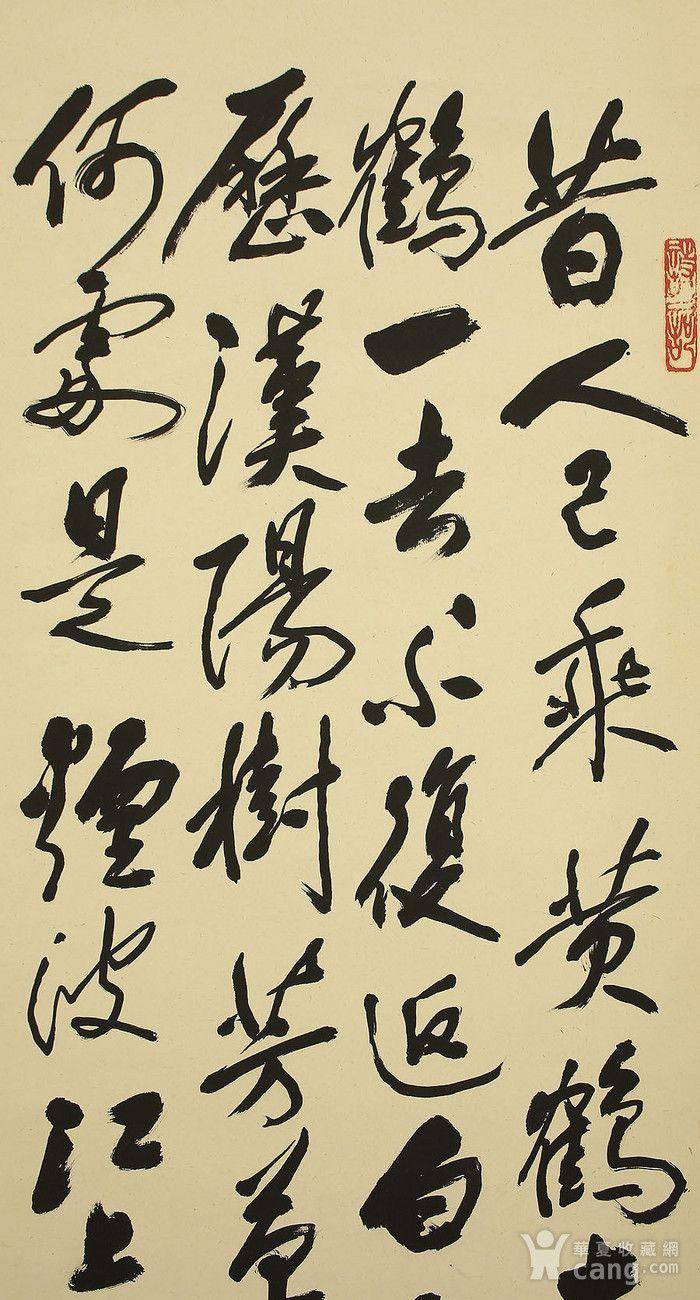 昔人已乘黄鹤
鹤一去不復返白
歷漢陽樹芳草
何處是煙波江上
華夏收藏網
cang.com